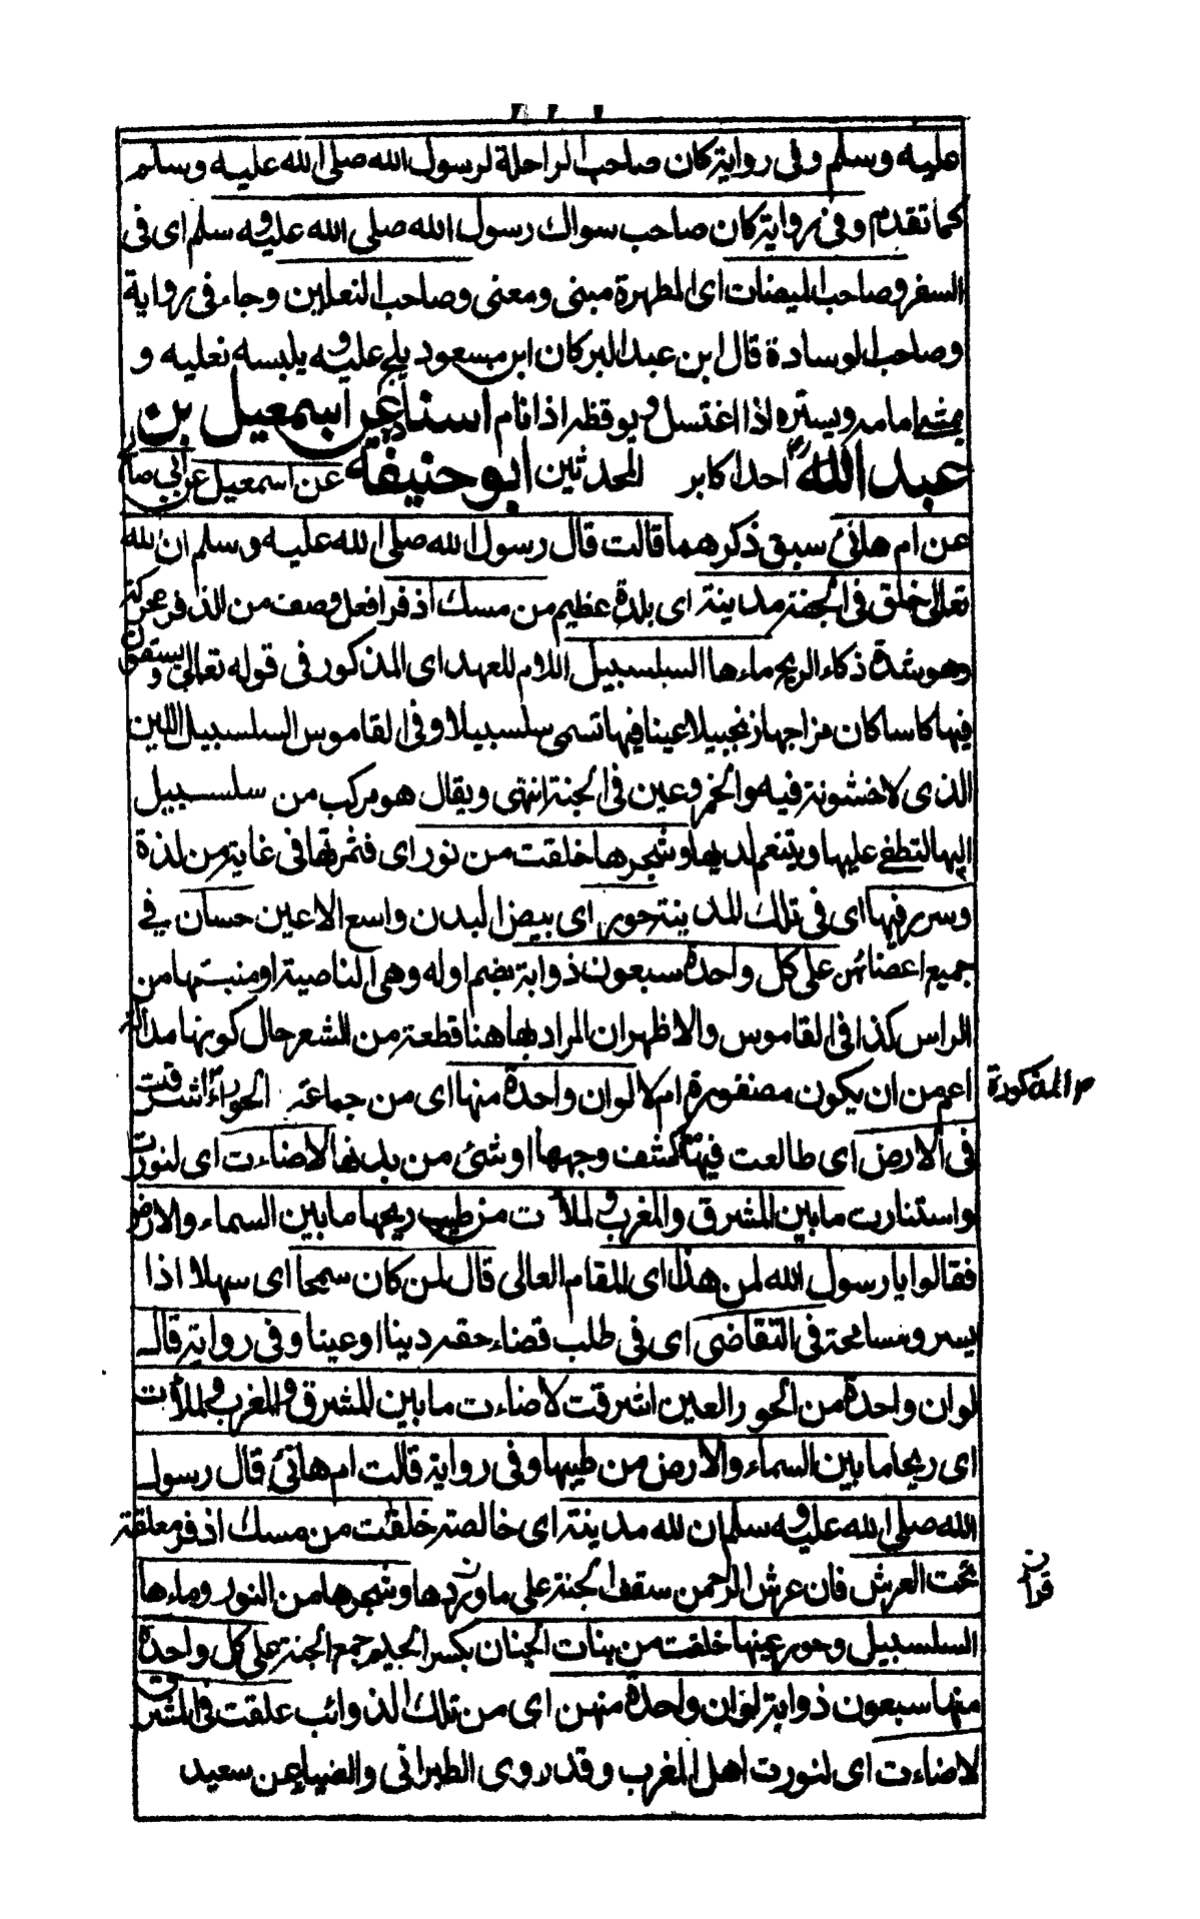 عليه وسلم وفى رواية كان صاحب الراحلة لرسول الله صلى الله عليه وسلم
كما تقدم وفى رواية كان صاحب سواك رسول الله صلى الله عليه وسلم اى فى
السفر وصاحب الميضات اى المطهرة مبنى ومعنى وصاحب النعلين وجاء فى رواية
وصاحب الوسادة قال ابن عبد البر كان ابن مسعود يلج عليه ويلبسه نعليه و
يمشى امامه ويستره اذا اغتسل ويوقظه اذا نام اسناده عن اسمعيل بن
عبد الله احد اكابر المحدثين ابو حنيفة عن اسمعيل عن ابي صالح
عن ام هانئ سبق ذكرهما قالت قال رسول الله صلى الله عليه وسلم ان الله
تعالى خلق فى الجنة مدينة اى بلدة عظيم من مسك اذفر افعل وصف من الذفر محركة
وهو شدة ذكاء الريح ماءها السلسبيل اللام للعهد اى المذكور فى قوله تعالى ويسقون
فيها كاسا كان مزاجها زنجبيلا عينا فيها تسمى سلسبيلا وفى القاموس السلسبيل اللين
الذى لاخشونة فيه والخمر وعين فى الجنة انتهى ويقال هو مركب من سلسبيل
اليها لتطفى عليها ويتنعم لديها وشجرها خلقت من نور اى فثمرتها فى غاية من لذة
وسرر فيها اى فى تلك المدينة حور اى بيض البدن واسع الاعين حسان في
جميع اعضائهن على كل واحدة سبعون ذوابة بضم اوله وهى الناصية او منبتها من
الراس كذا فى القاموس والاظهر ان المراد بها هنا قطعة من الشعر حال كونها مدالة
اعم من ان يكون مضفورة ام لا لو ان واحدة منها اى من جماعة الحوراء اشرقت
م المذكورة
فى الارض اى طالعت فيها كشف وجهها او شئ من بدنها لاضاءت اى لنورت
واستنارت ما بين المشرق والمغرب ولملأت من طيب ريحها ما بين السماء والارض
فقالوا يا رسول الله لمن هذا اى المقام العالى قال لمن كان سمحا اى سهلا اذا
يسر ومسامحة فى التقاضى اى فى طلب قضاء حقه دينا او عينا وفى رواية قال
لو ان واحدة من الحور العين اشرقت لاضاءت ما بين المشرق والمغرب ولملأت
اى ريحا ما بين السماء والارض من طيبها وفى رواية قالت ام هانئ قال رسول
الله صلى الله عليه وسلم ان لله مدينة اى خالصة خلقت من مسك اذفر معلقة
تحت العرش فان عرش الرحمن سقف الجنة على ما ورد وشجرها من النور وماءها
السلسبيل وحور عينها خلقت من بنات الجنان بكسر الجيم جمع الجنة على كل واحدة
منها سبعون ذوابة لو ان واحدة منهن اى من تلك الذوائب علقت فى المشرق
لاضاءت اى لنورت اهل المغرب وقد روى الطبرانى والضياء عن سعيد